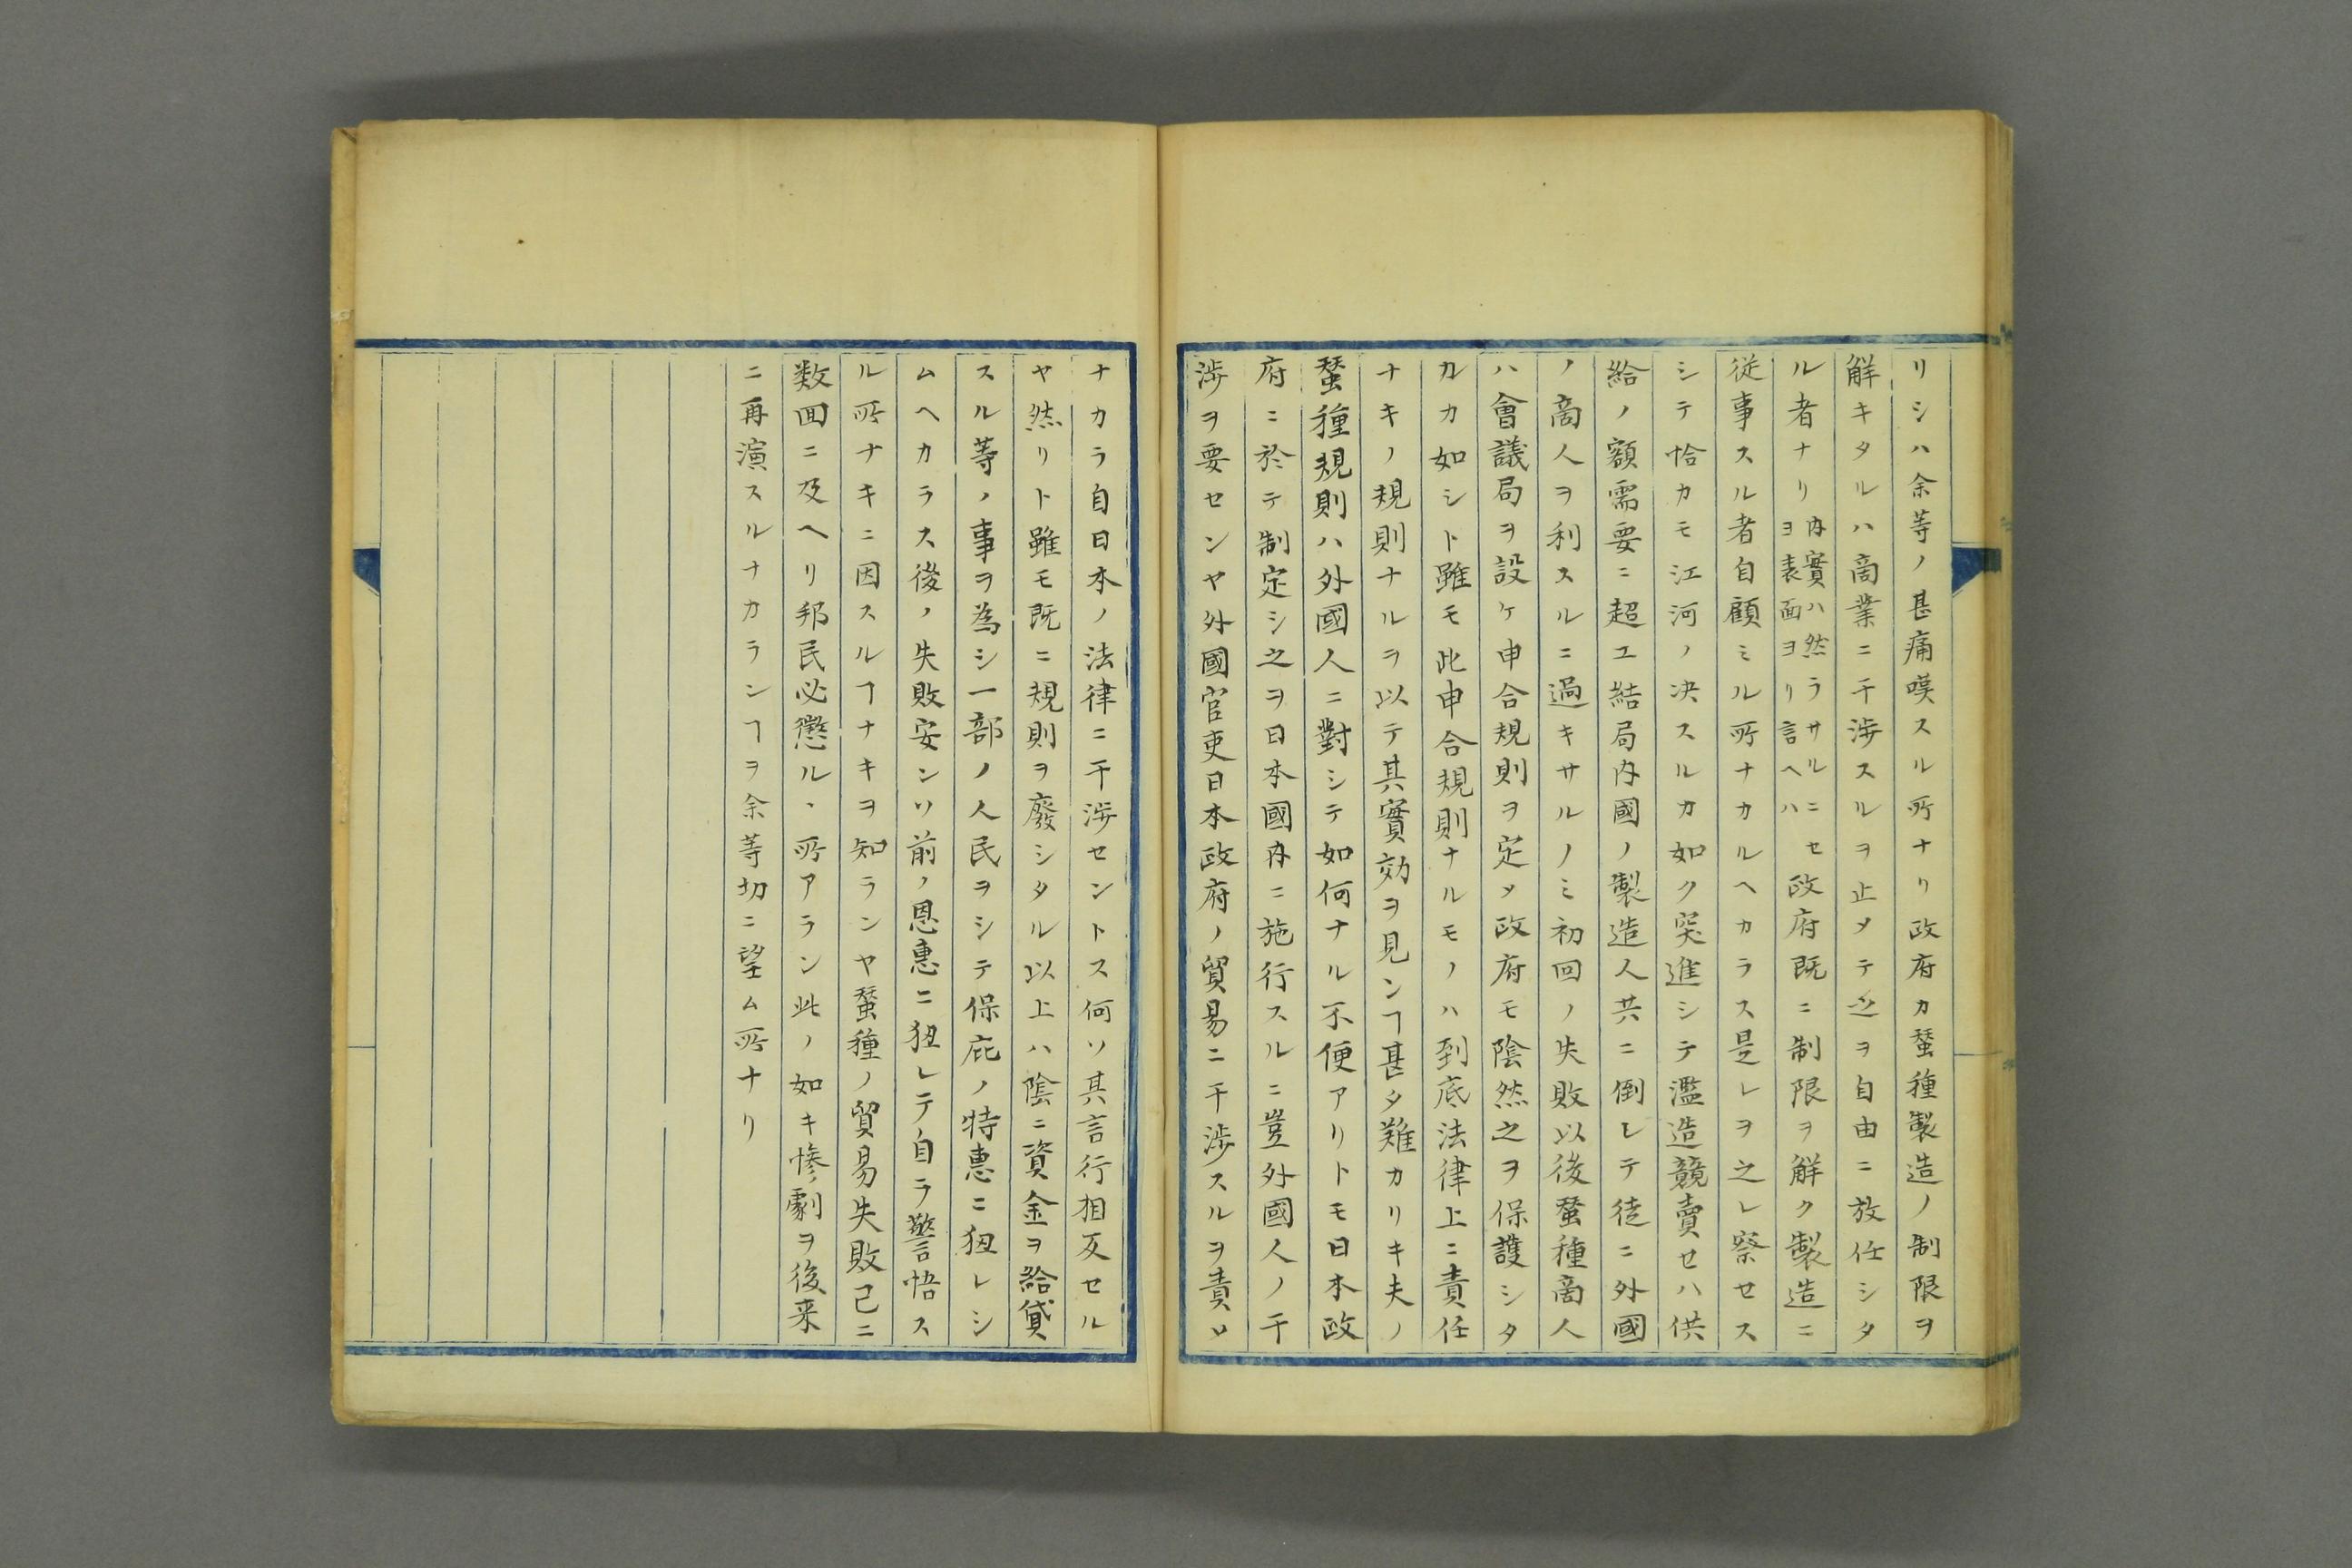 リシハ余等ノ甚痛嘆スル所ナリ政府カ蚕種製造ノ制限ヲ
解キタルハ商業ニ干渉スルヲ止メテ之ヲ自由ニ放任シタ
ル者ナリ内實ハ然ラサルニセヨ表面ヨリ言ヘハ政府既ニ制限ヲ解ク製造ニ
従事スル者自顧ミル所ナカルヘカラス是レヲ之レ察セス
シテ恰カモ江河ノ决スルカ如ク突進シテ濫造競賣セハ供
給ノ額需要ニ超エ結局内國ノ製造人共ニ倒レテ徒ニ外國
ノ商人ヲ利スルニ過キサルノミ初回ノ失敗以後蚕種商人
ハ會議局ヲ設ケ申合規則ヲ定メ政府モ陰然之ヲ保護シタ
ルカ如シト雖モ此申合規則ナルモノハ到底法律上ニ責任
ナキノ規則ナルヲ以テ其實効ヲ見ンヿ甚タ難カリキ夫ノ
蚕種規則ハ外國人ニ對シテ如何ナル不便アリトモ日本政
府ニ於テ制定シ之ヲ日本國内ニ施行スルニ豈外國人ノ干
渉ヲ要センヤ外國官吏日本政府ノ貿易ニ干渉スルヲ責メ
ナカラ自日本ノ法律ニ干渉セントス何ソ其言行相反セル
ヤ然リト雖モ既ニ規則ヲ廢シタル以上ハ陰ニ資金ヲ給貸
スル等ノ事ヲ為シ一部ノ人民ヲシテ保庇ノ特惠ニ狃レシ
ムヘカラス後ノ失敗安ンソ前ノ恩惠ニ狃レテ自ラ警悟ス
ル所ナキニ因スルヿナキヲ知ランヤ蚕種ノ貿易失敗已ニ
数回ニ及ヘリ邦民必懲ルヽ所アラン此ノ如キ惨劇ヲ後来
ニ再演スルナカランヿヲ余等切ニ望ム所ナリ